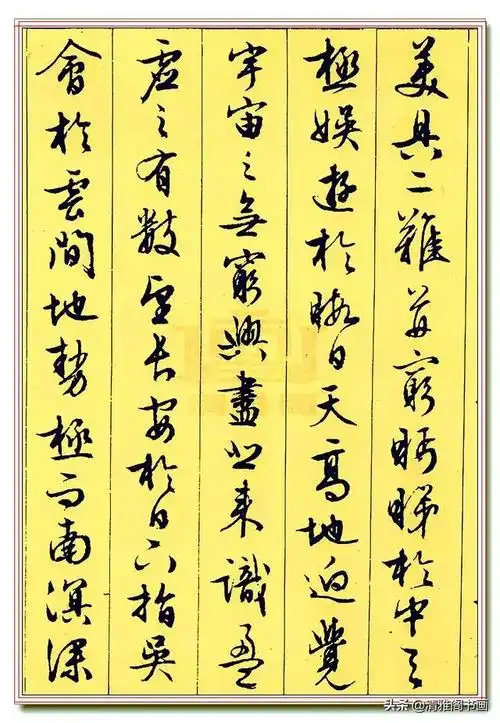 美具二難並窮眄睇於中天
極娛遊於暇日天高地迥覺
宇宙之無窮興盡悲來識盈
虛之有數望長安於日下指吳
會於雲間地勢極而南溟深
头条@清雅阁书画